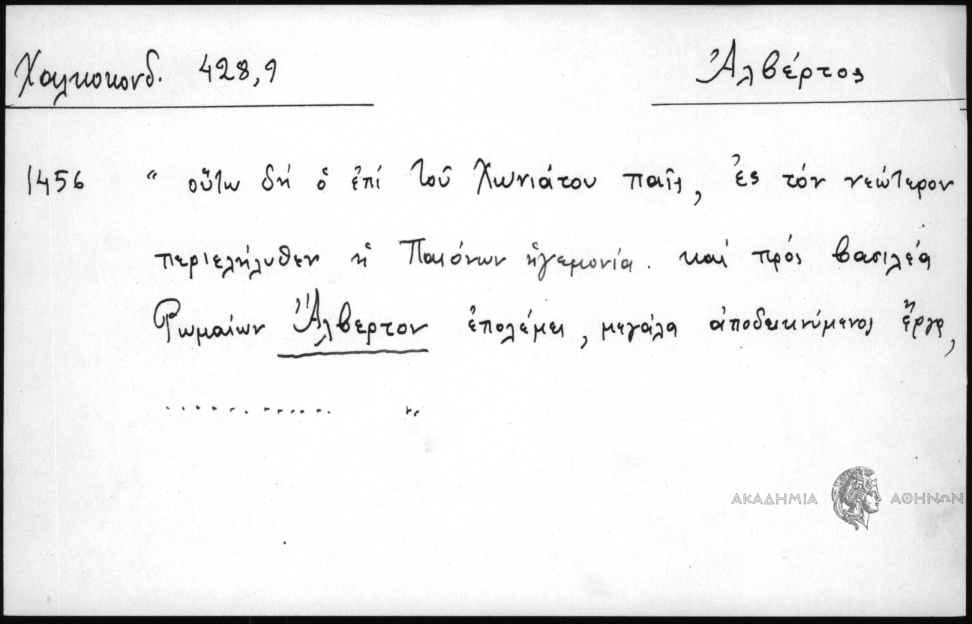 Χαλκοκονδ. 428,9
Ἀλβέρτος
1456 “ οὕτω δή ὁ ἐπί τοῦ Χωνιάτου παῖς, ἐς τόν νεώτερον
περιελήλυθεν ἡ Παιόνων ἡγεμονία. καί πρός βασιλέα
Ῥωμαίων Ἄλβερτον ἐπολέμει, μεγάλα ἀποδεικνύμενος ἔργα,
.............. ”
ΑΚΑΔΗΜΙΑ ΑΘΗΝΩΝ